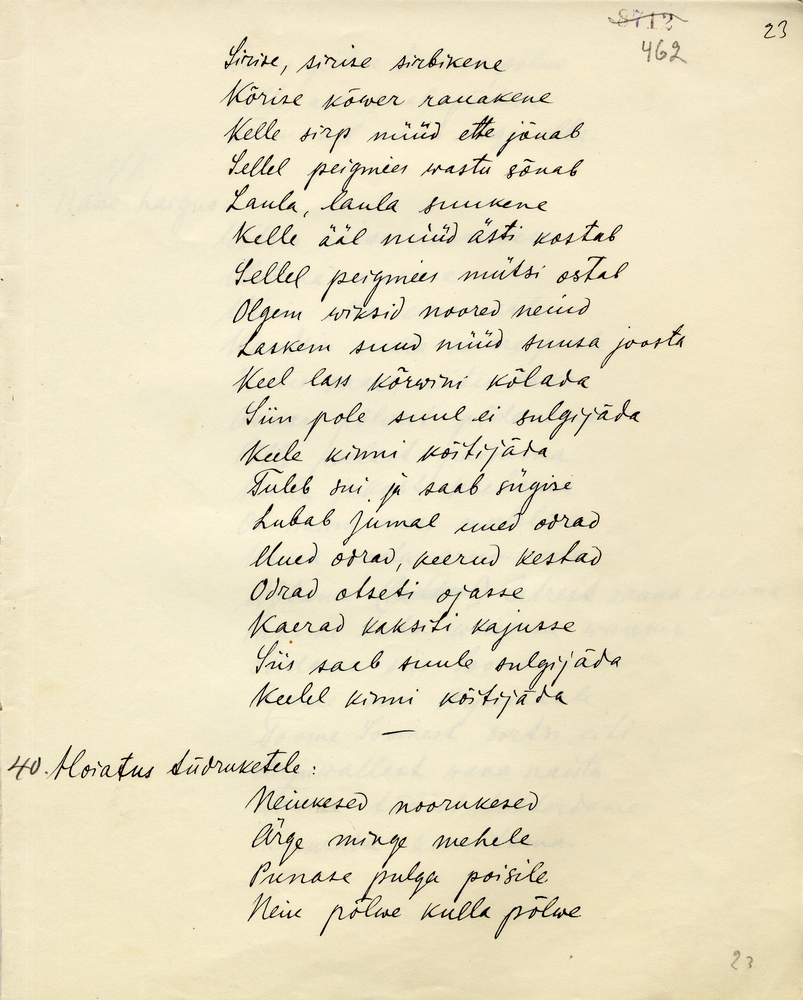 8712
23
462
Sirise, sirise sirbikene
Kõrise kõwer rauakene
Kelle sirp nüüd ette jõuab
Sellel peigmees wastu sõuab
Laula, laula suukene
Kelle ääl nüüd ästi kostab
Sellel peigmees mütsi ostab
Olgem wiksid noored neiud
Laskem suud nüüd suusa joosta
Keel lass kõrwini kõlada
Siin pole suul ei sulgijäda
Keele kinni köitijäda
Tuleb sui ja saab sügise
Lubab Jumal uued odrad
Uued odrad, keerud kestad
Odrad otseti ojasse
Kaerad kaksiti kajusse
Siis saab suule sulgijäda
Keelel kinni köitijäda
40. Hoiatus tüdruketele:
Neiukesed noorukesed
Ärge minge mehele
Punase pulga poisile
Neiu põlwe kulla põlwe
23